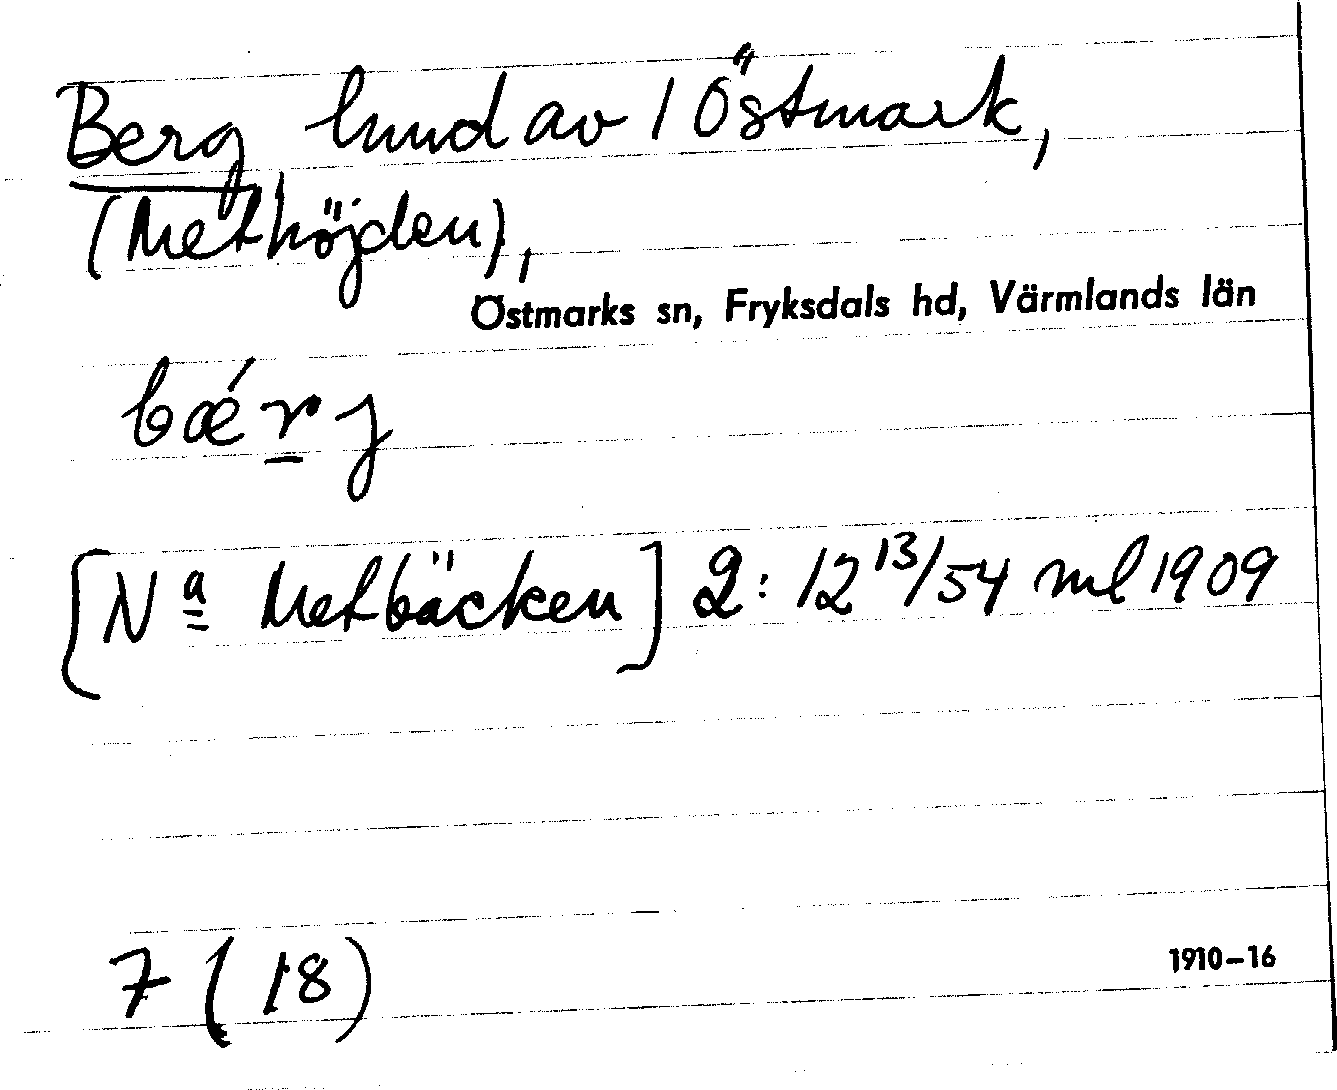 Berg hmd av 1 Östmark,
(Methöjden),
Östmarks sn, Fryksdals hd, Värmlands län
bǽrj
[Nᵃ Metbäcken] 2:12 13/54 ml 1909
7 (18)
1910–16